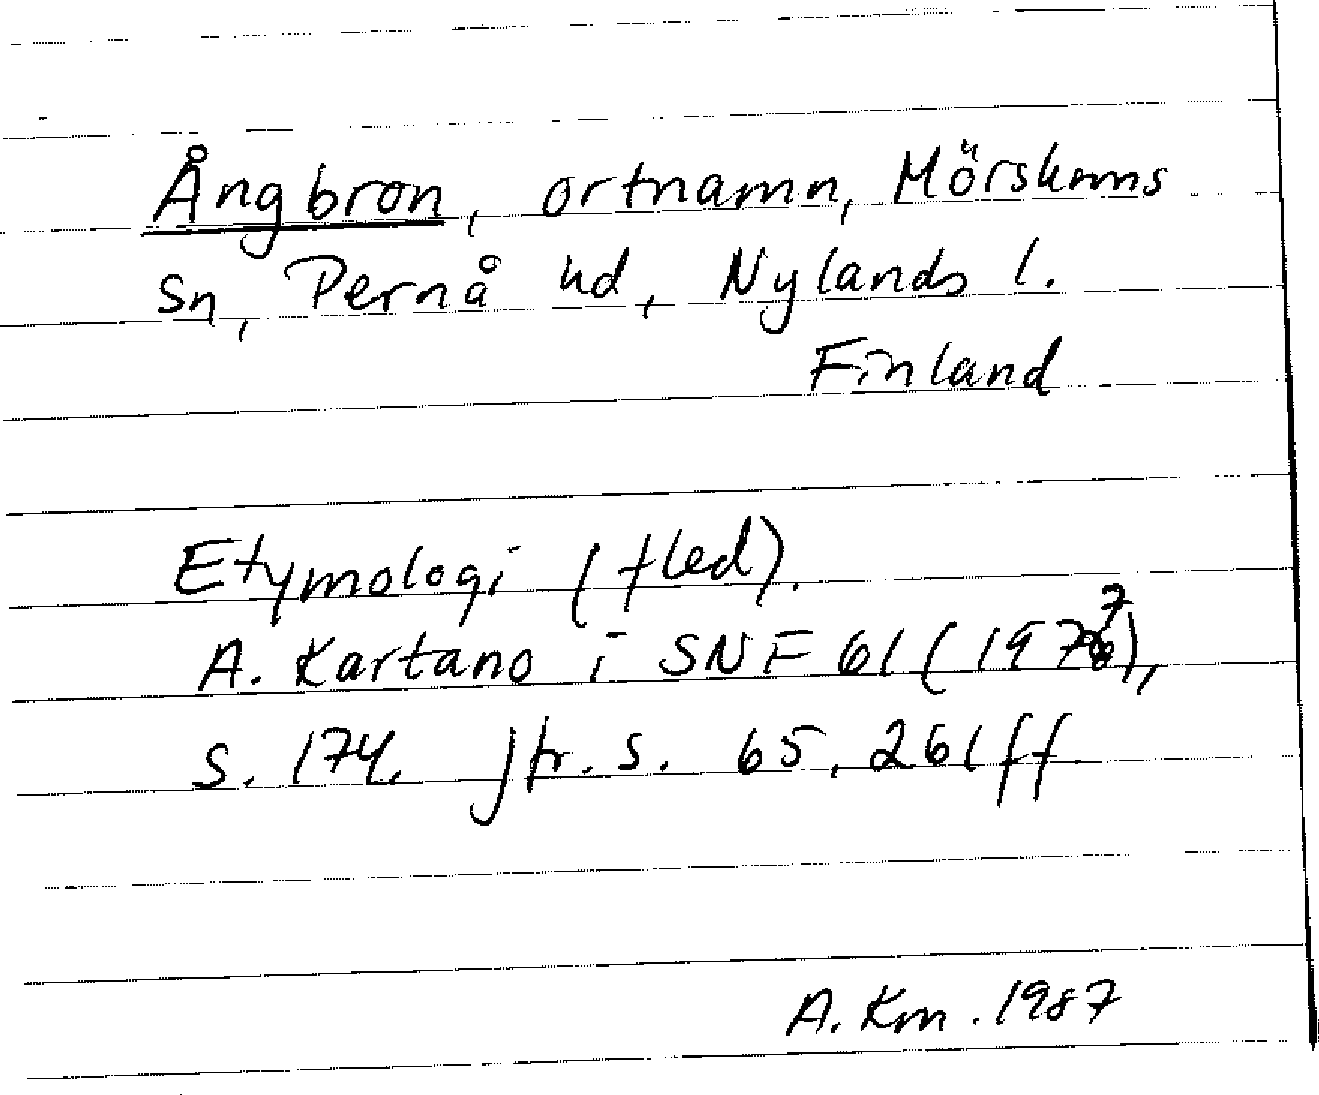 Ångbron, ortnamn, Mörskoms
sn, Pernå hd, Nylands l.
Finland
Etymologi (fled).
A. Kartano i SNF 61 (1977),
s. 174. Jfr. s. 65, 261 ff
A. Km. 1987